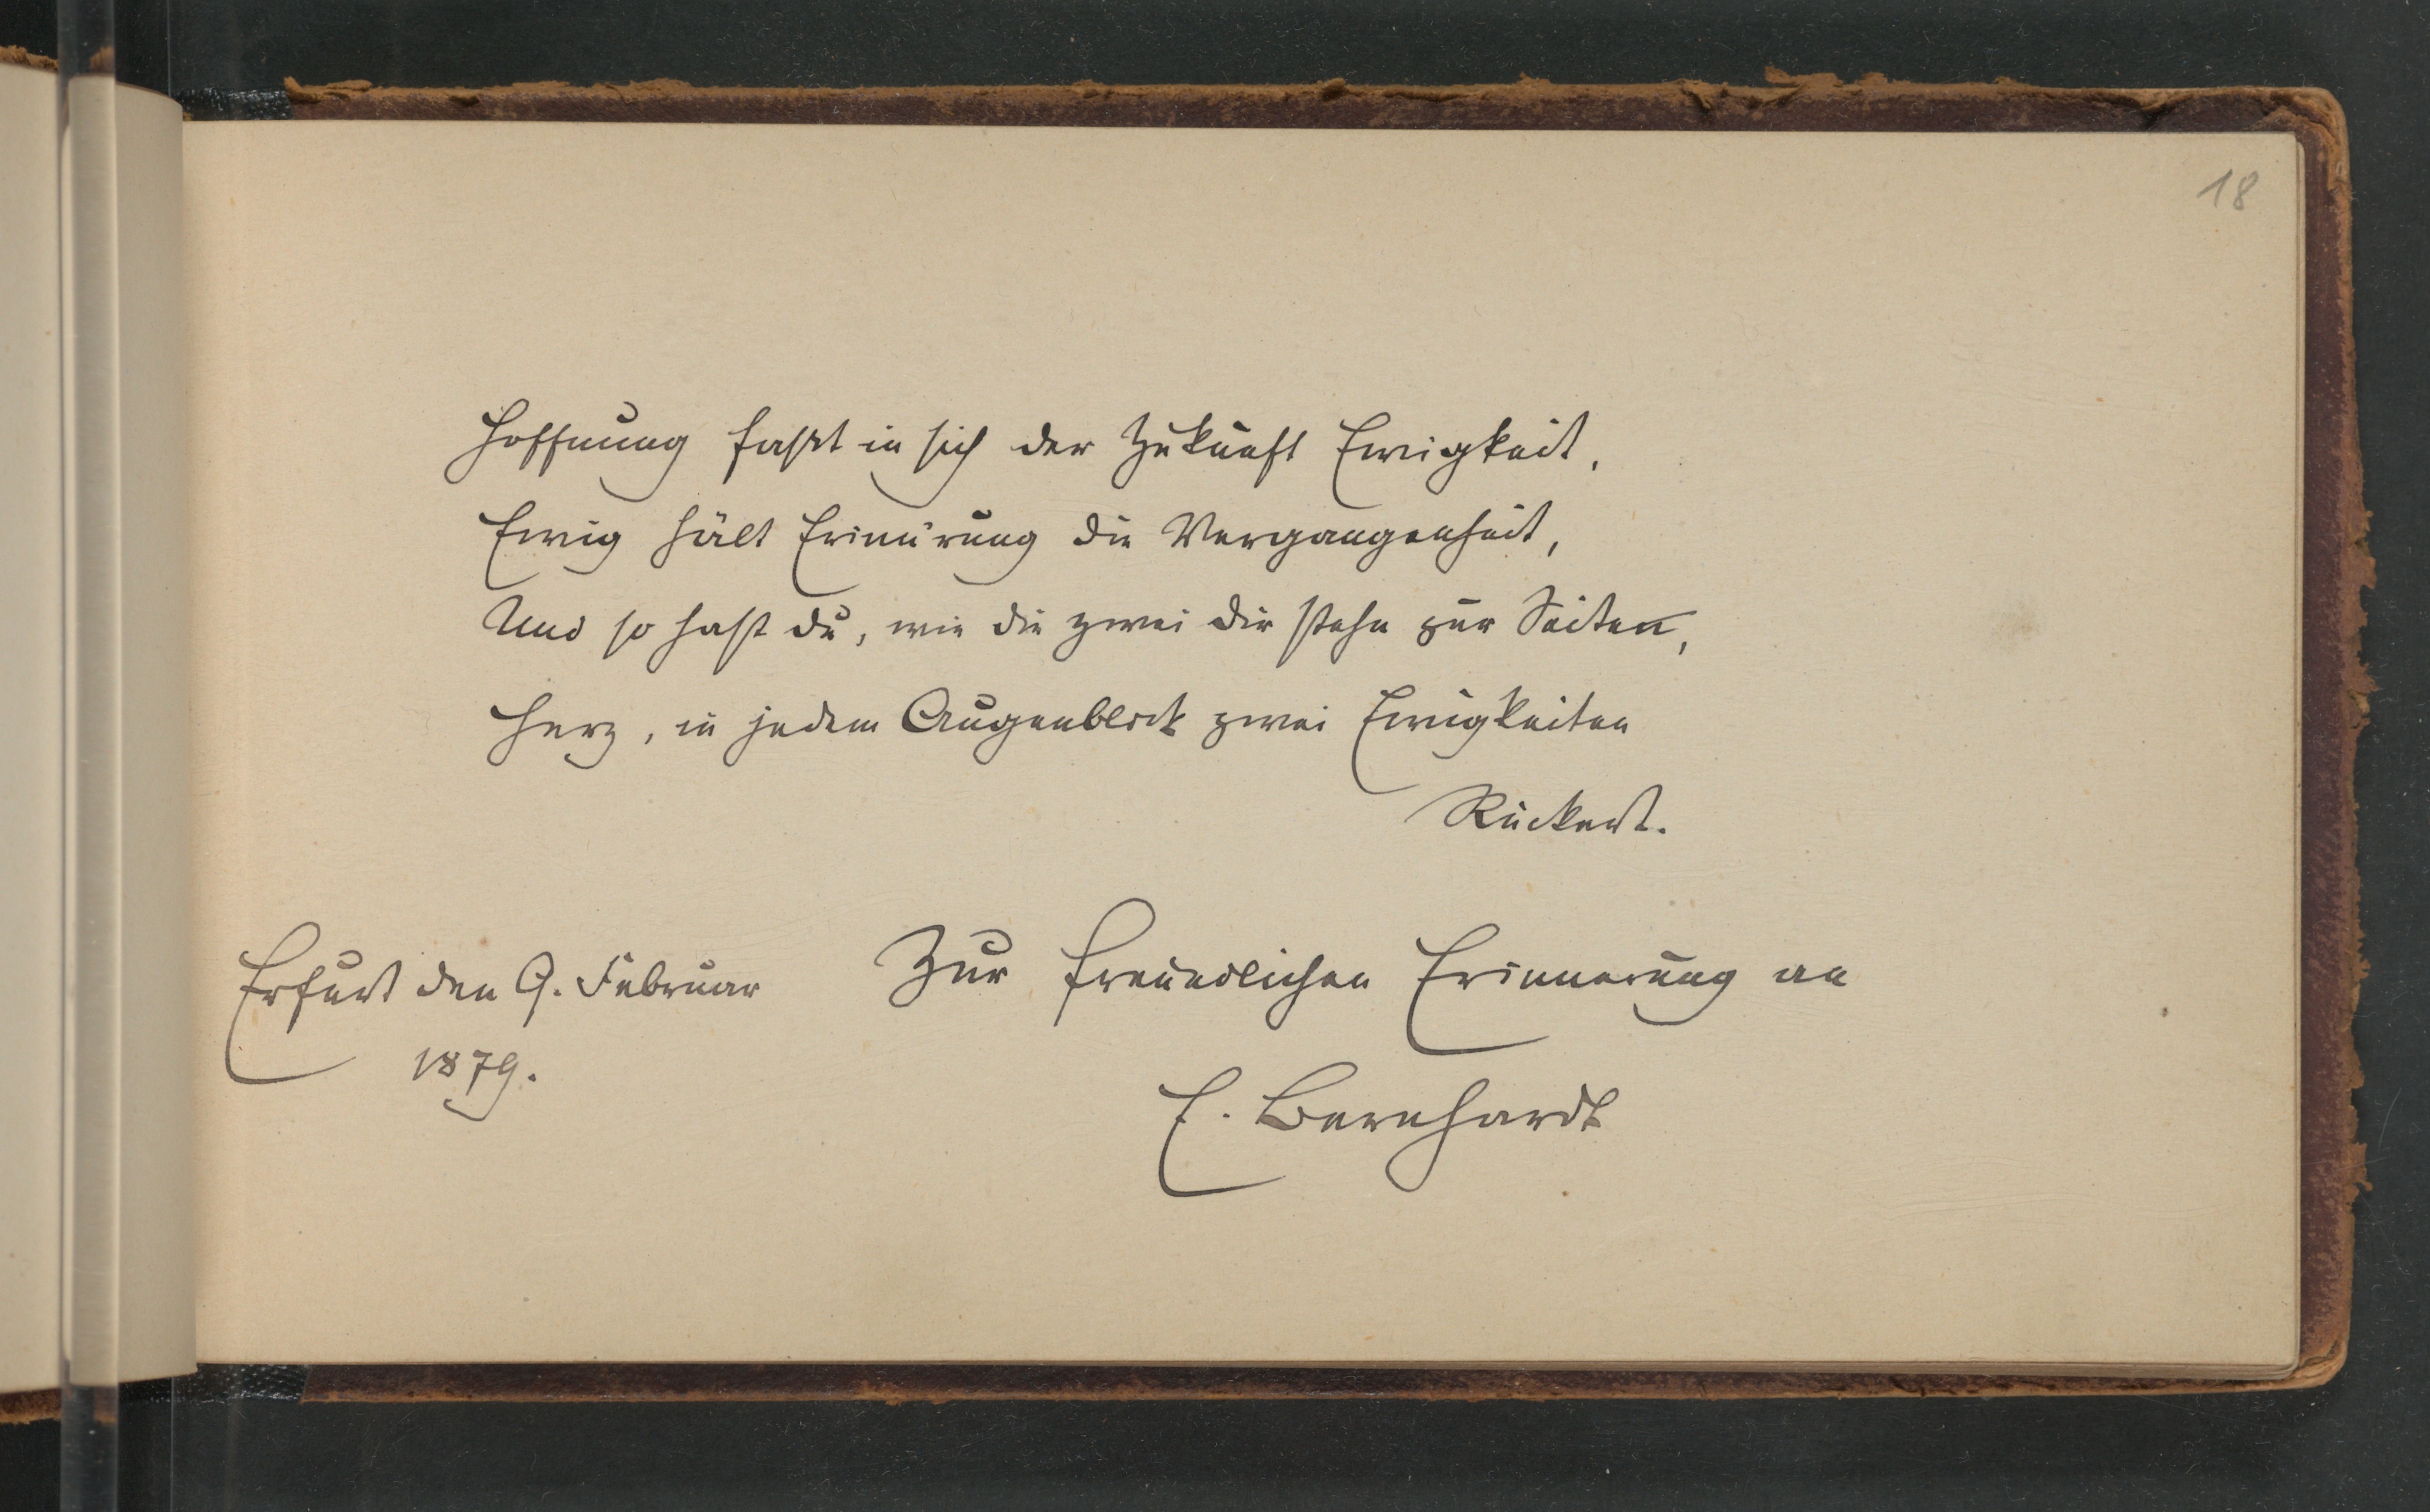 18
Hoffnung faßt in sich der Zukunft Ewigkeit,
Ewig hält Erinnrung die Vergangenheit,
Und so hast du, wie die zwei dir stehn zur Seiten,
Herz, in jedem Augenblick zwei Ewigkeiten
Rückert.
Erfurt den 9. Februar
1879.
Zur freundlichen Erinnerung an
E. Bernhardt